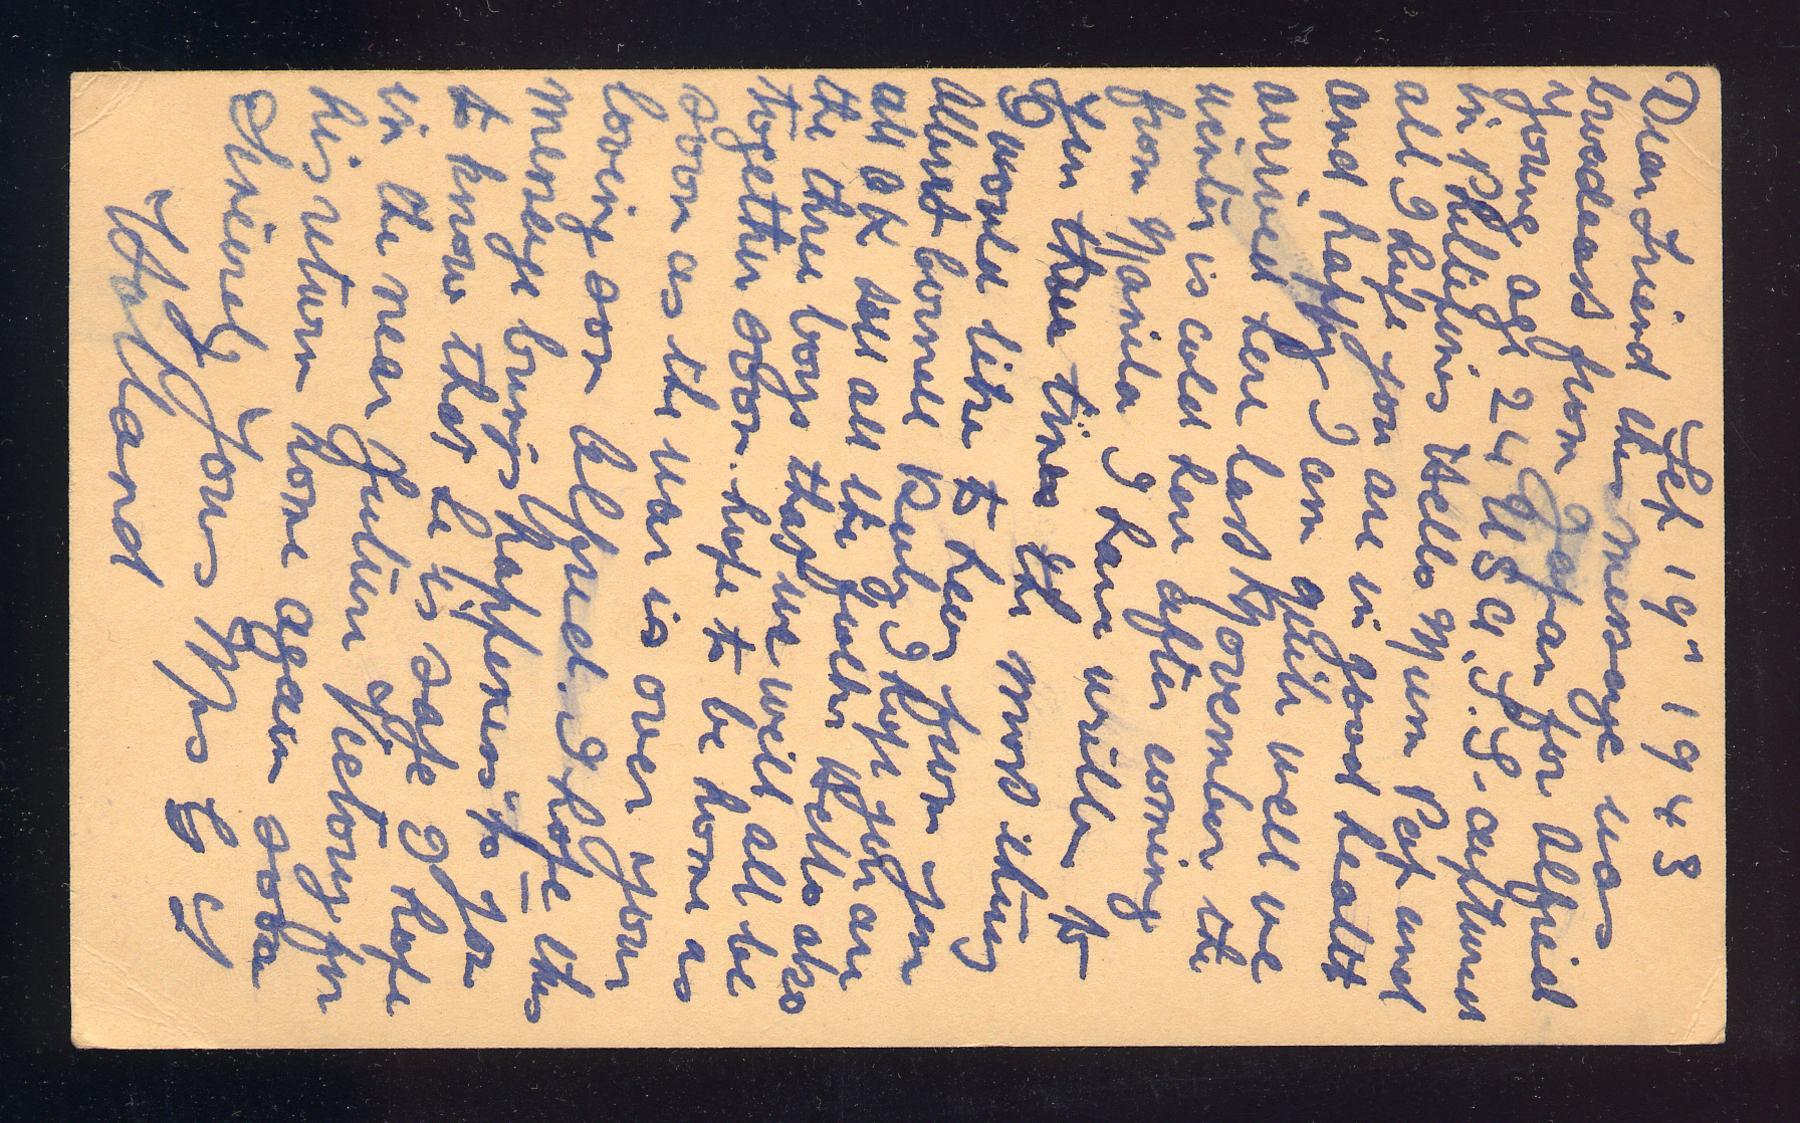 Sep 19" 1943
Dear Friend this message was
broadcast from Japan for Alfred
young age 24 U S A. S. S. captured
in Phillipines Hello Mum Pop and
all I hope you are in good health
and happy I am quite well we
arrived here last November the
winter is cold here after coming
from Manila I have written to
you three times the most thing
I would like to hear from you
about Cornell Buly I hope you are
all OK tell all the folks Hello also
the three boys that we will all be
together soon. hope to be home as
soon as the war is over your
loving son Alfred. I hope this
message brings happeness to you
to know that he is safe I hope
in the near future Victory for
his return home again soon
Sincerely Yours Mrs C G
Holland